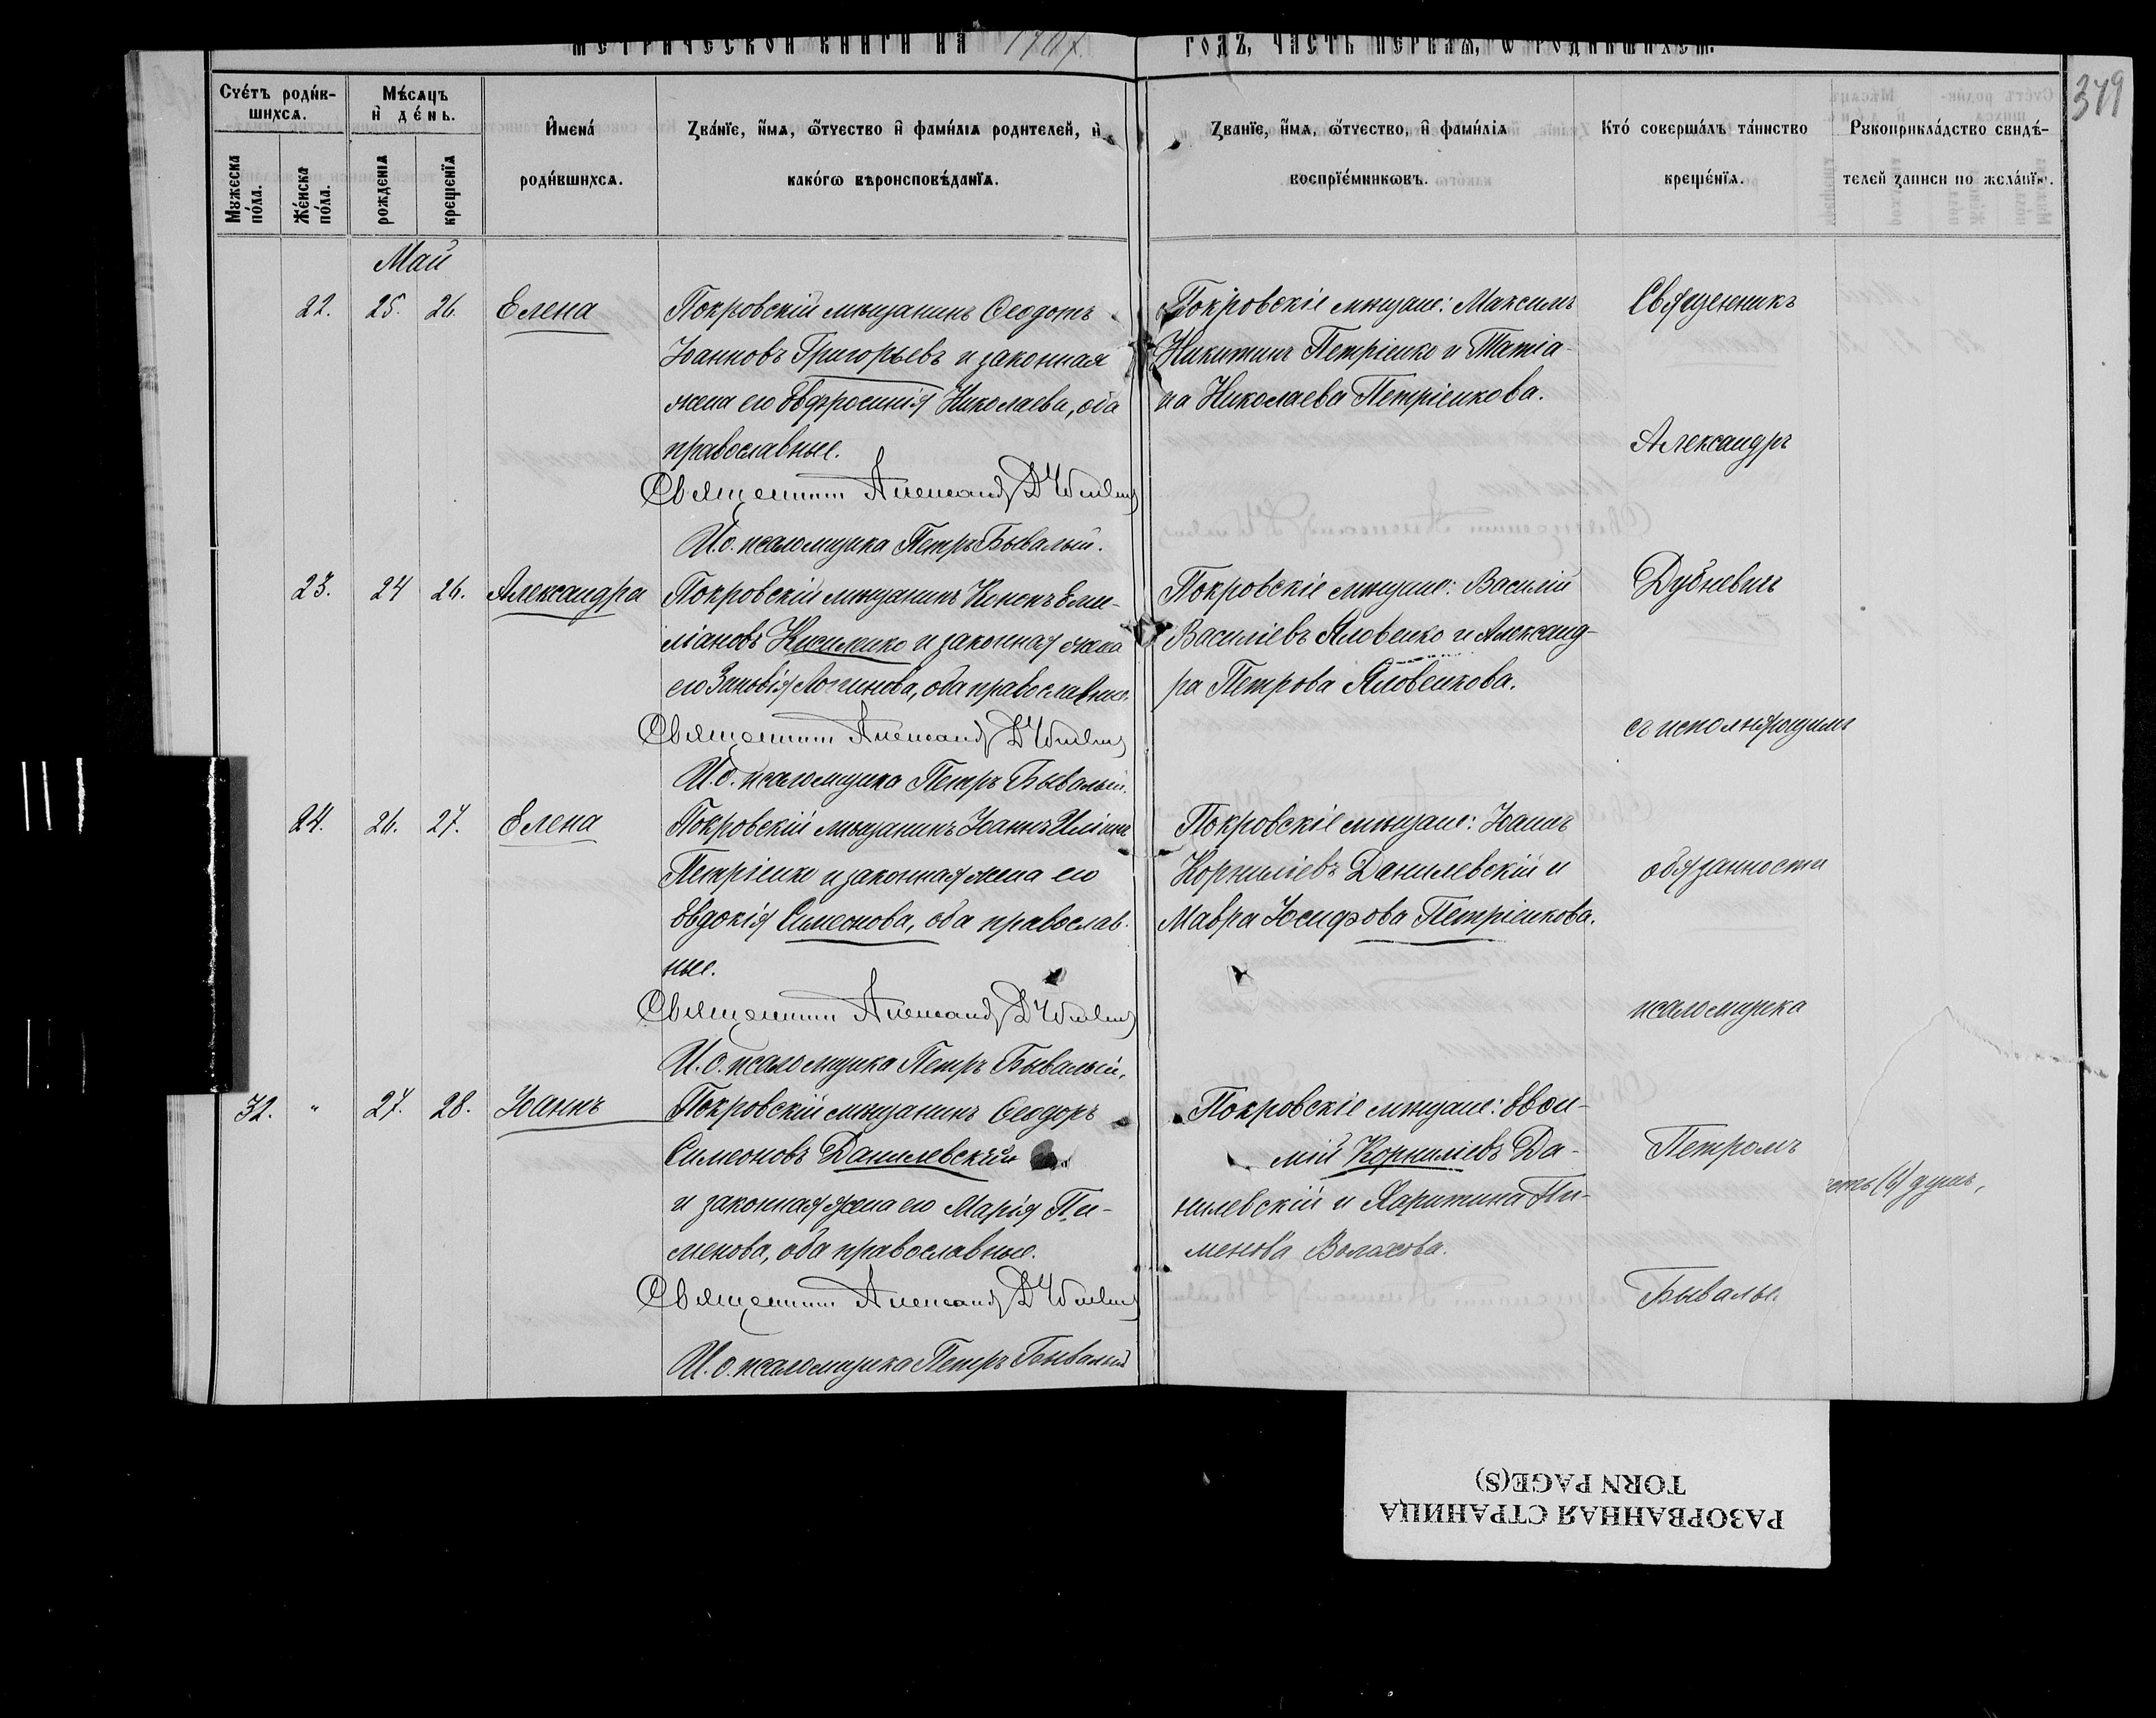 МЕТРИЧЕСКОЙ КНИГИ НА 1907.
ГОДЪ, ЧАСТЬ ПЕРВАЯ, Ѡ РОДИВШИХСЯ.
379
Счётъ роди́вшихсѧ.
Мꙋжеска по́ла.
Же́нска по́ла.
Мѣ́сѧцъ и҆ де́нь.
рожденїѧ
крещенїѧ
И҆мена́ роди́вшихсѧ.
Зва́нїе, и҆́мѧ, ѻ҆́тчество и҆ фамі́лїѧ родителей, и҆
како́гѡ вѣроисповѣ́данїѧ.
Зва́нїе, и҆́мѧ, ѻ҆́тчество, и҆ фамі́лїѧ
воспрїе́мникѡвъ.
Кто́ соверша́лъ та́инство
креще́нїѧ.
Рꙋкоприкла́дство свидѣ́-
телей записи по жела́нїю.
Май
22. 25. 26. Елена
Покровскій мѣщанинъ Ѳеодотъ
Іоанновъ Григорьевъ и законная
жена его Евфросинія Николаева, оба
православные.
Священникъ Александръ Дубневичъ
И.о. псаломщика Петръ Бывалый.
Покровскіе мѣщане: Максимъ
Никитинъ Петріенко и Татіа-
на Николаева Петріенкова.
Священникъ
Александръ
23. 24 26. Александра
Покровскій мѣщанинъ Кононъ Еми-
ліановъ Кисиленко и законная жена
его Зиновія Логинова, оба православные.
Священникъ Александръ Дубневичъ
И.о. псаломщика Петръ Бывалый.
Покровскіе мѣщане: Василій
Василіевъ Яловенко и Александ-
ра Петрова Яловенкова.
Дубневичъ
съ исполняющимъ
24. 26. 27. Елена
Покровскій мѣщанинъ Іоаннъ
Петріенко и законная жена его
Евдокія Симеонова, оба православ-
ные.
Священникъ Александръ Дубневичъ
И.о. псаломщика Петръ Бывалый.
Покровскіе мѣщане: Іоаннъ
Корниліевъ Данилевскій и
Мавра Іосифова Петріенкова.
обязанности
псаломщика
32. " 27. 28. Іоаннъ
Покровскій мѣщанинъ Ѳеодоръ
Симеоновъ Данилевскій
и законная жена его Марія Пи-
менова, оба православные.
Священникъ Александръ Дубневичъ
И.о. псаломщика Петръ Бывалый
Покровскіе мѣщане: Евѳи-
мій Корниліевъ Да-
нилевскій и Харитина Пи-
менова Волохова.
Петромъ
Бывалы
(6) душъ,
РАЗОРВАННАЯ СТРАНИЦА
TORN PAGE(S)